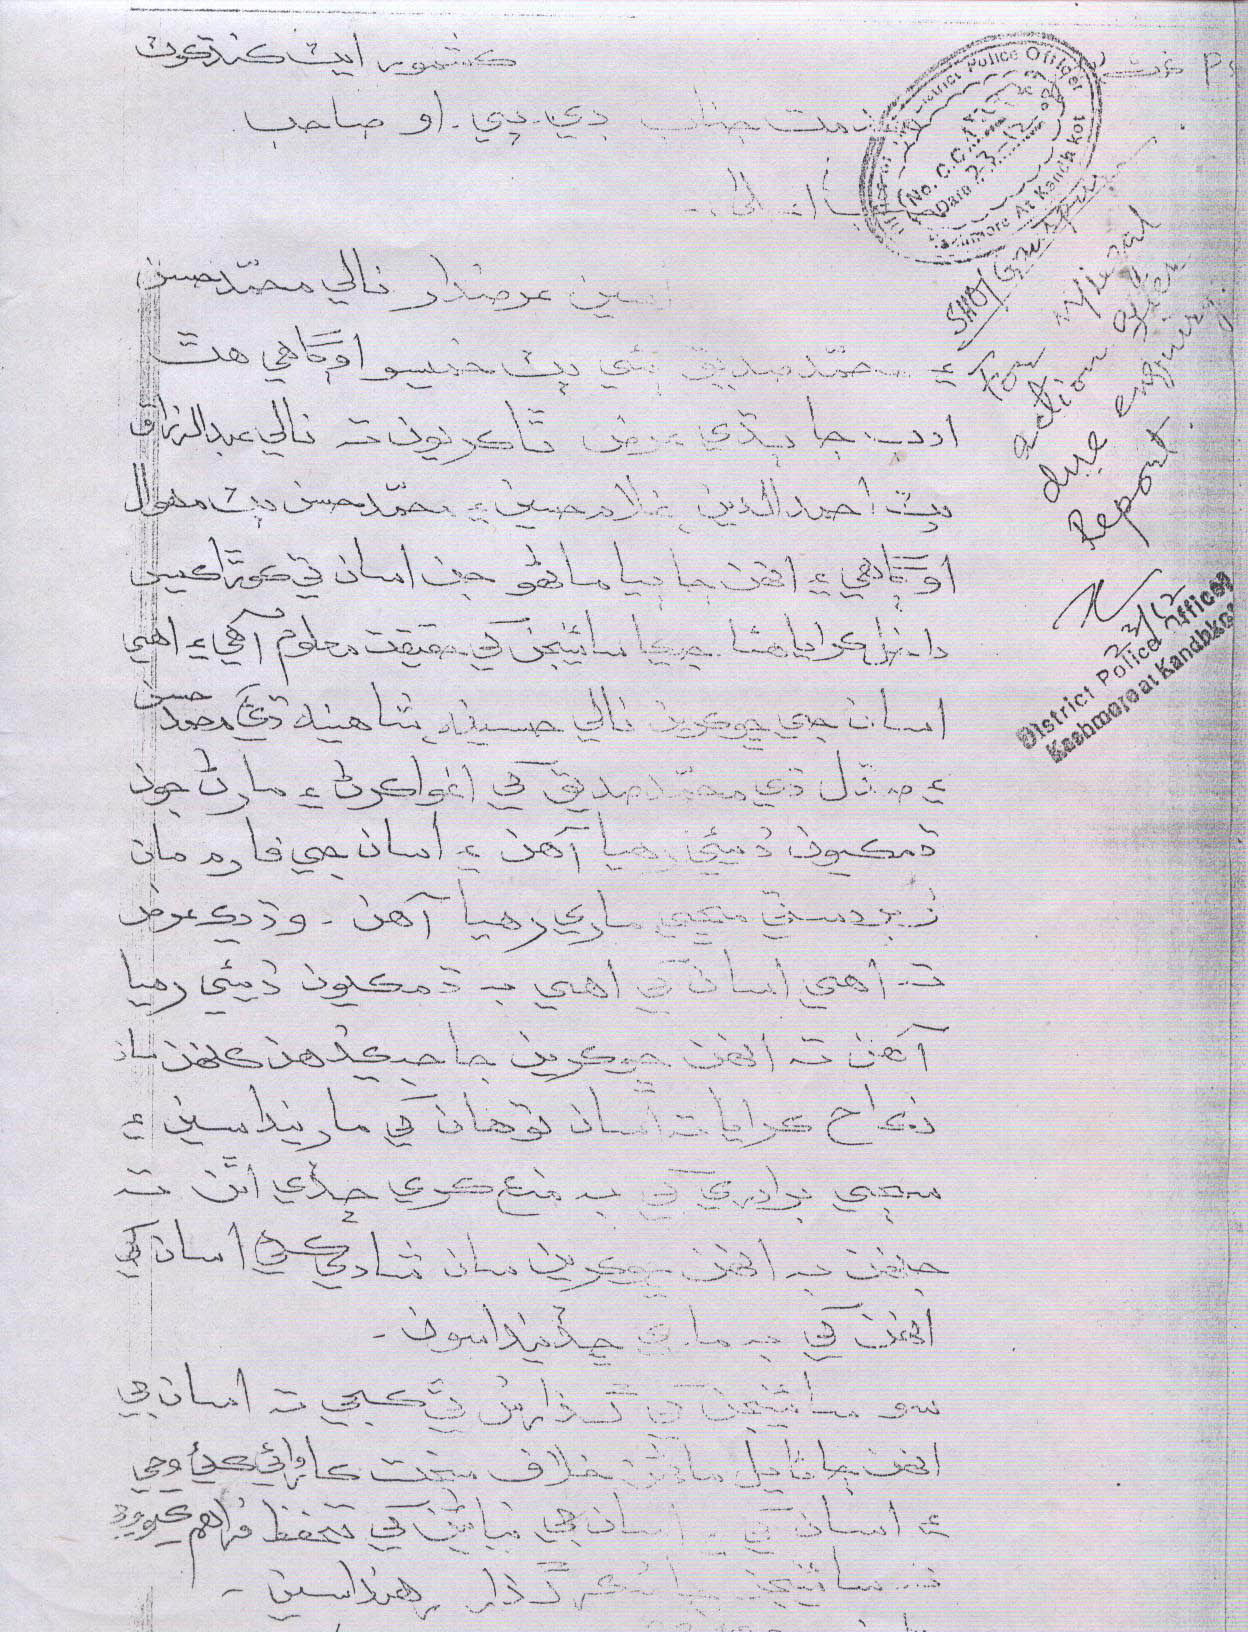 ڪشمور ايٽ ڪنڌڪوٽ
جناب ڊي. پي. او صاحب
District Police Officer
No. C.C
Date 23-12
Kashmore At Kandhkot
SHO/Gauspur
For n/legal
action after
due enquiry.
Report
District Police Officer
Kashmore at Kandhkot
عرضدار نالي محمّد حسن
۽ محمّد صديق ٻئي پٽ خميسو اوڳاهي هٿ
ادب جا ٻڌي عرض ٿا ڪريون ته نالي عبدالرزاق
پٽ احمدالدين، غلام حسين ۽ محمّد حسن پٽ
اوڳاهي ۽ انهن جا ٻيا ماڻهو جن اسان تي ڪوڙا ڪيس
داخل ڪرايا هئا جيڪا سائينجن کي حقيقت معلوم آهي ۽ اهي
اسان جي ڇوڪرين نالي حسينه، شاهينه ڌيءَ محمد حسن
۽ صندل ڌي محمّد صديق کي اغوا ڪرڻ ۽ مارڻ جون
ڌمڪيون ڏيئي رهيا آهن ۽ اسان جي فارم مان
زبردستي مڇي ماري رهيا آهن ۔ وڌيڪ عرض
ته اهي اسان کي اهي به ڌمڪيون ڏيئي رهيا
آهن ته انهن ڇوڪرين جا جيڪڏهن ڪنهن سان
نڪاح ڪرايا ته اسان توهان کي مارينداسين ۽
سڄي برادري کي به منع ڪري ڇڏي اٿن ته
جنهن به انهن ڇوڪرين سان شادي ڪئي اسان کي
انهن کي به ماري ڇڏينداسون ۔
سو سائينجن کي گذارش ٿي ڪجي ته اسان جي
انهن ڄاڻايل ماڻهن خلاف سخت ڪاروائي ڪئي وڃي
۽ اسان کي ۽ اسان جي نياڻين کي تحفظ فراهم ڪيو وڃي
ته سائينجن جا شڪر گذار رهنداسين ۔